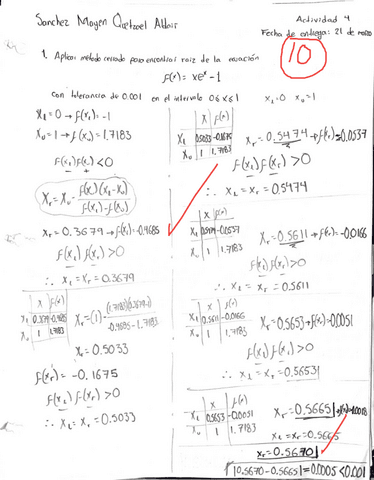 Sanchez Moyen Quetzael Aldair
Actividad 4
Fecha de entrega: 21 de marzo
10
1. Aplicar método cerrado para encontrar raiz de la ecuación
f(x) = xe^x - 1
con tolerancia de 0.001 en el intervalo 0 ≤ x ≤ 1
x_L=0 x_u=1
x_L=0 → f(x_L)=-1
x_u=1 → f(x_u)=1.7183
f(x_L)f(x_u)<0
x_r = x_u - f(x_u)(x_L-x_u) / f(x_L)-f(x_u)
x_r = 0.3679 → f(x_r)=-0.4685
f(x_L) f(x_r) > 0
∴ x_L = x_r = 0.3679
x f(x)
x_L 0.3679 -0.4685
x_u 1 1.7183
x_r = (1) - (1.7183)(0.3679-1) / -0.4685-1.7183
x_r = 0.5033
f(x_r) = -0.1675
f(x_L) f(x_r) > 0
∴ x_L = x_r = 0.5033
x f(x)
x_L 0.5033 -0.1675
x_u 1 1.7183
x_r = 0.5474 → f(x_r)=-0.0537
f(x_L) f(x_r) > 0
∴ x_L = x_r = 0.5474
x f(x)
x_L 0.5474 -0.0537
x_u 1 1.7183
x_r = 0.5611 → f(x_r)=-0.0166
f(x_L) f(x_r) > 0
∴ x_L = x_r = 0.5611
x f(x)
x_L 0.5611 -0.0166
x_u 1 1.7183
x_r = 0.5653 → f(x_r)=-0.0051
f(x_L) f(x_r) > 0
∴ x_L = x_r = 0.5653
x f(x)
x_L 0.5653 -0.0051
x_u 1 1.7183
x_r = 0.5665
x_L = x_r = 0.5665
x_r = 0.5670
|0.5670-0.5665|=0.0005<0.001